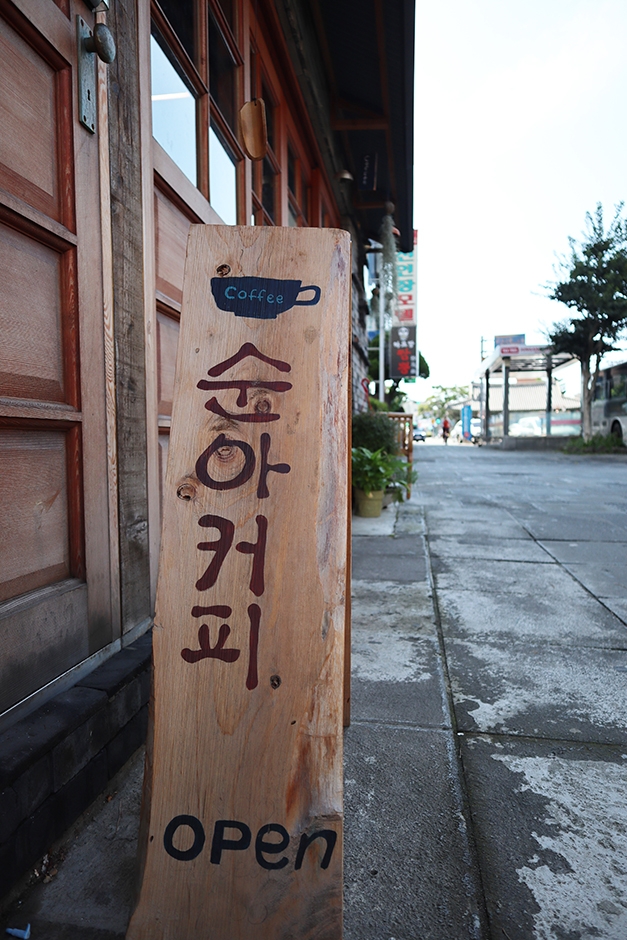 Coffee
순
아
커
피
open